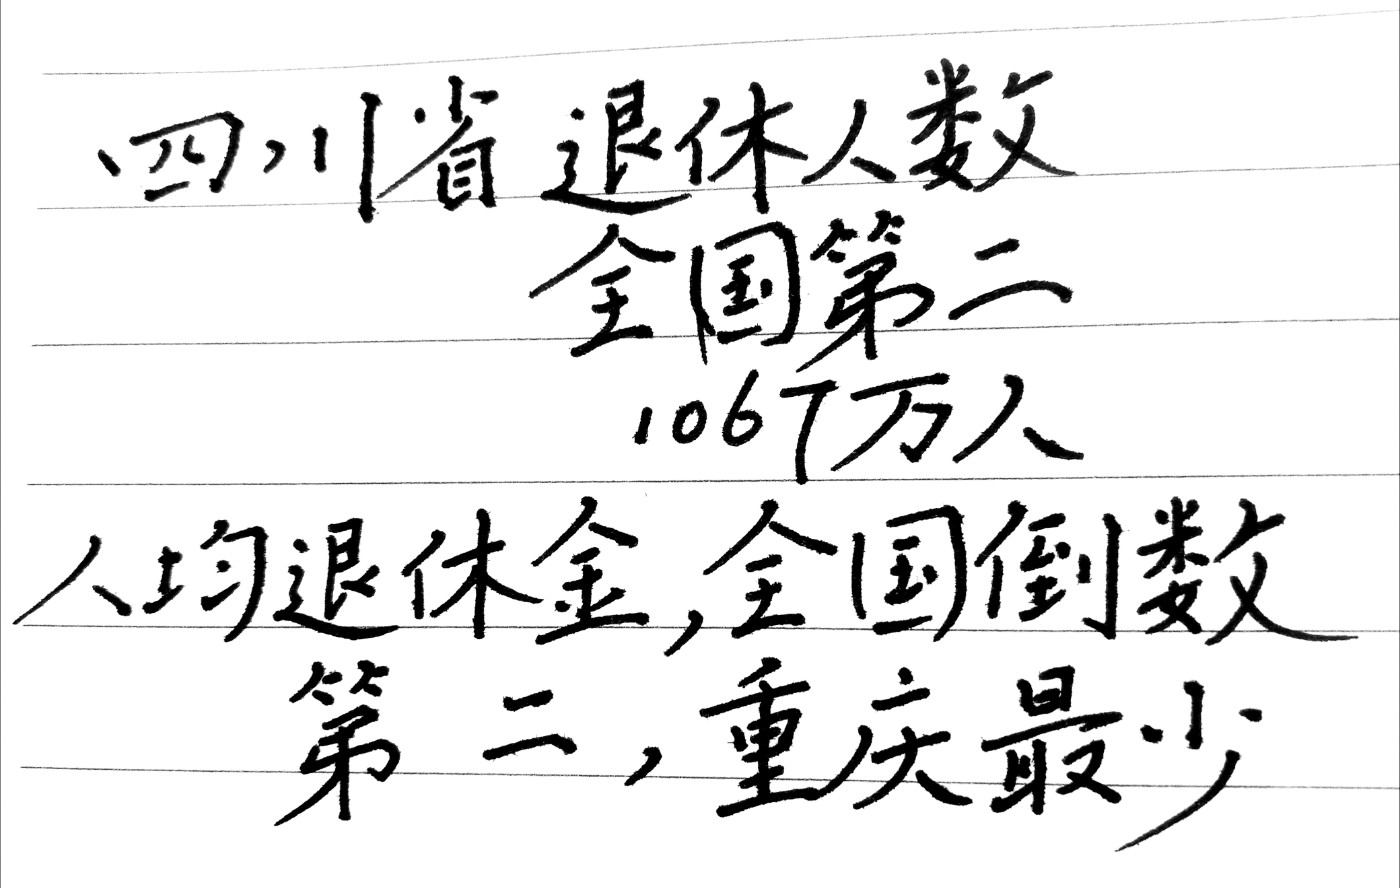 四川省退休人数
全国第二
1067万人
人均退休金,全国倒数
第二,重庆最少